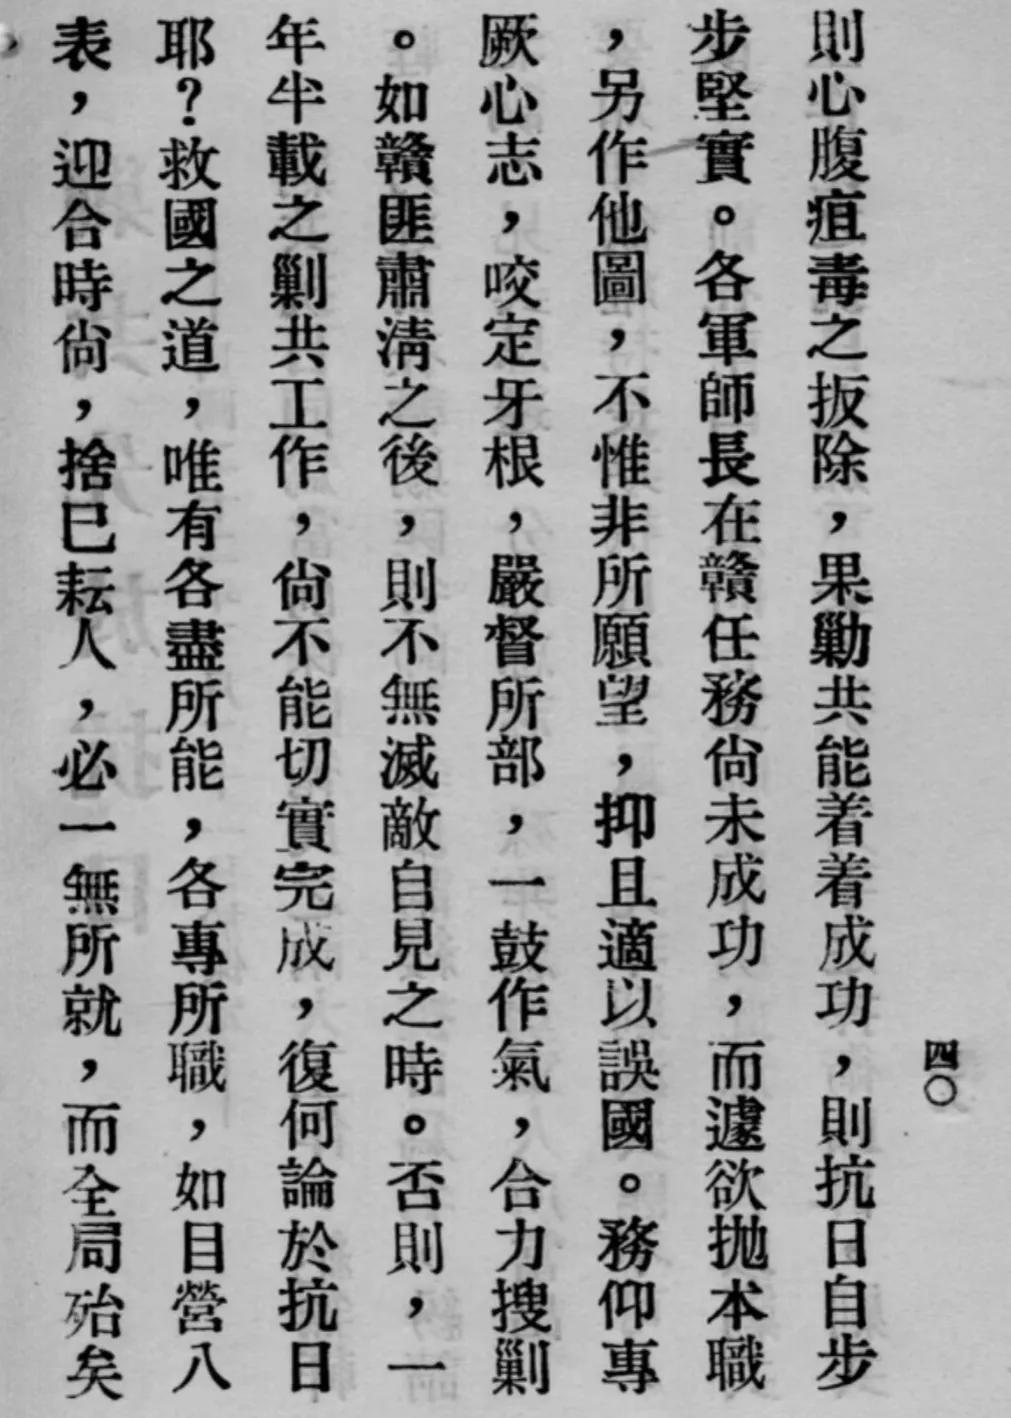 四〇
則心腹疽毒之扳除，果勦共能着着成功，則抗日自步
步堅實。各軍師長在贛任務尙未成功，而遽欲拋本職
，另作他圖，不惟非所願望，抑且適以誤國。務仰專
厥心志，咬定牙根，嚴督所部，一鼓作氣，合力搜剿
。如贛匪肅清之後，則不無滅敵自見之時。否則，一
年半載之剿共工作，尙不能切實完成，復何論於抗日
耶？救國之道，唯有各盡所能，各專所職，如目營八
表，迎合時尙，捨已耘人，必一無所就，而全局殆矣